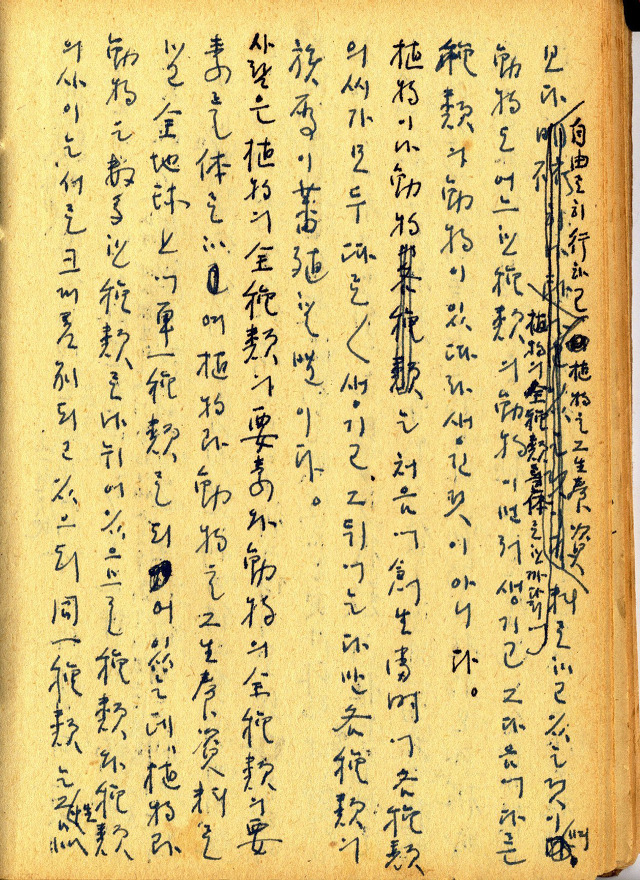 自由로히 行하고 植物은 그 生養資
모다 料를 하고 있는 것이며
植物의 全種類를 体를 한 까닭에
動物도 어느 한 種類의 動物이 먼저 생기고 그 다음에 다른
種類의 動物이 있다라 생긴 것이 아니다。
植物이나 動物 는 처음에 創生當時에 各種類
의 씨가 모두 다르 생기고 그 뒤에는 다만 各種類의
族属이 蕃殖한 이다。
사람은 植物의 全種類의 要素와 動物의 全種類의 要
素를 体를 하여 植物과 動物은 그 生養資料로
한 全地球上에 單一種類로 되어 있는데 植物과
動物은 數多한 種類로 나뉘어 있으므로 種類와 種類
의 사이는 서로 크게 別되고 있으되 同一種類는